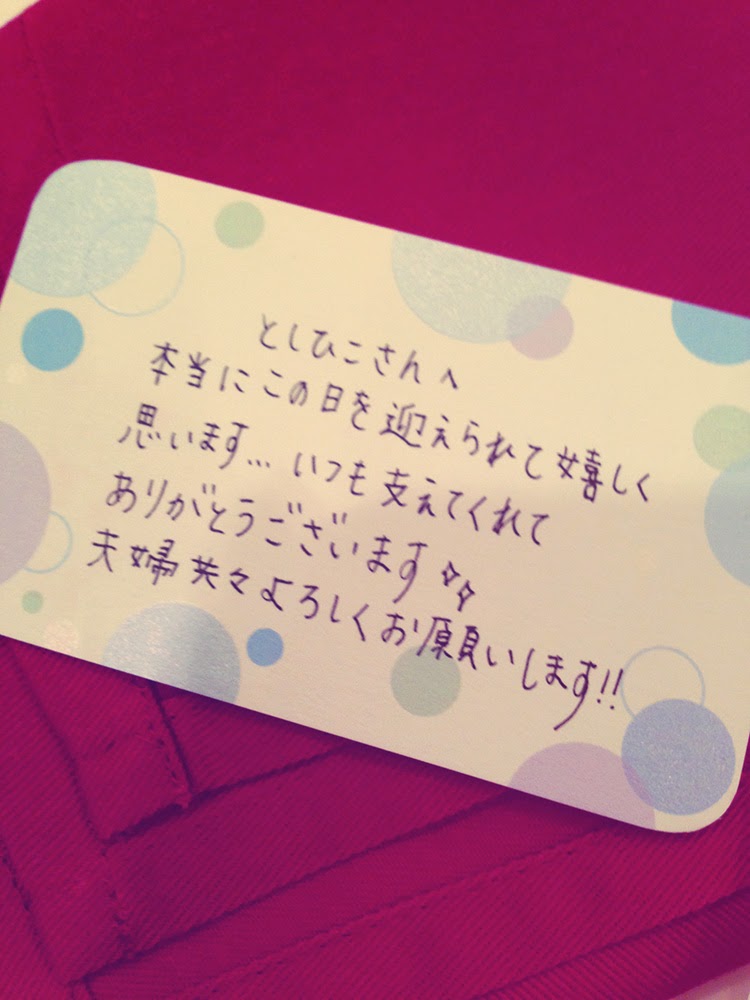 としひこさんへ
本当にこの日を迎えられて嬉しく
思います…いつも支えてくれて
ありがとうございます✧✧
夫婦共々よろしくお願いします!!